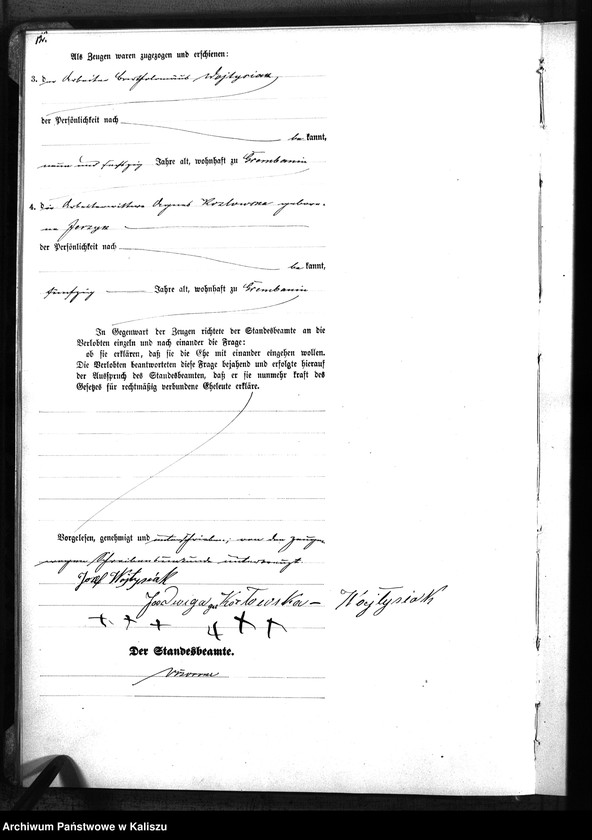 Als Zeugen waren zugezogen und erschienen:
3. Der Arbeiter Bartholomäus Wojtysiak
der Persönlichkeit nach
bekannt,
neun und fünfzig Jahre alt, wohnhaft zu Trembanin
4. die Arbeiterwittwe Agnes Kozlowska gebore-
ne Jerzyk
der Persönlichkeit nach
bekannt,
fünfzig Jahre alt, wohnhaft zu Trembanin
In Gegenwart der Zeugen richtete der Standesbeamte an die
Verlobten einzeln und nach einander die Frage:
ob sie erklären, daß sie die Ehe mit einander eingehen wollen.
Die Verlobten beantworteten diese Frage bejahend und erfolgte hierauf
der Ausspruch des Standesbeamten, daß er sie nunmehr kraft des
Gesetzes für rechtmäßig verbundene Eheleute erkläre.
Vorgelesen, genehmigt und unterschrieben, von den Zeugen
wegen Schreibensunkunde unterkreuzt
Józef Wojtysiak
Jadwega Kozlowska - Wojtysiak
+ + + + + +
Der Standesbeamte.
Archiwum Państwowe w Kaliszu